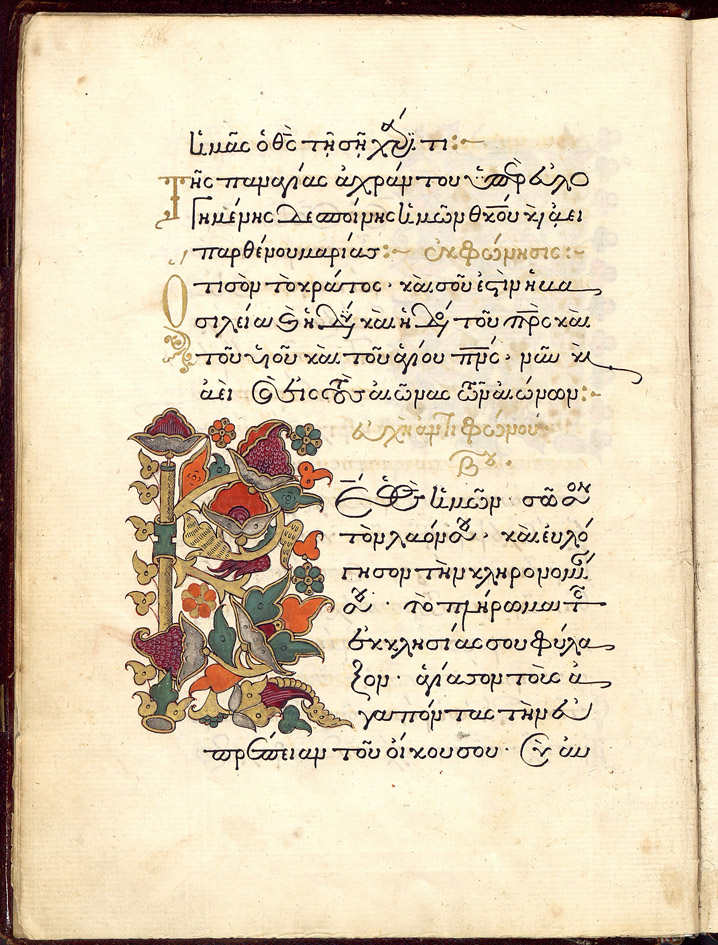 ἡμᾶς ὁ θς τῇ σῇ χάριτι:~
Τῆς παναγίας ἀχράντου ὑπερευλο
γημένης δεσποίνης ἡμῶν θκου κὶ ἀει
παρθένου μαρίας:~ ἐκφώνησις:~
Ὅτι σὸν τὸ κράτος· καὶ σοῦ ἐστιν ἡ βα
σιλεία καὶ ἡ δύναμις καὶ ἡ δόξα τοῦ πρς καὶ
τοῦ υἱοῦ καὶ τοῦ ἁγίου πνς· νῦν κὶ
ἀεὶ καὶ εἰς τοὺς αἰῶνας τῶν αἰώνων:~
εὐχὴ ἀντιφώνου
βου.
Κε ὁ θς ἡμῶν· σῶσον
τὸν λαόν σου· καὶ εὐλό
γησον τὴν κληρονομίαν
σου· τὸ πλήρωμα τῆς
ἐκκλησίας σου φύλα
ξον· ἁγίασον τοὺς ἀ
γαπῶντας τὴν εὐ
πρέπειαν τοῦ οἴκου σου· Σὺ αὐ